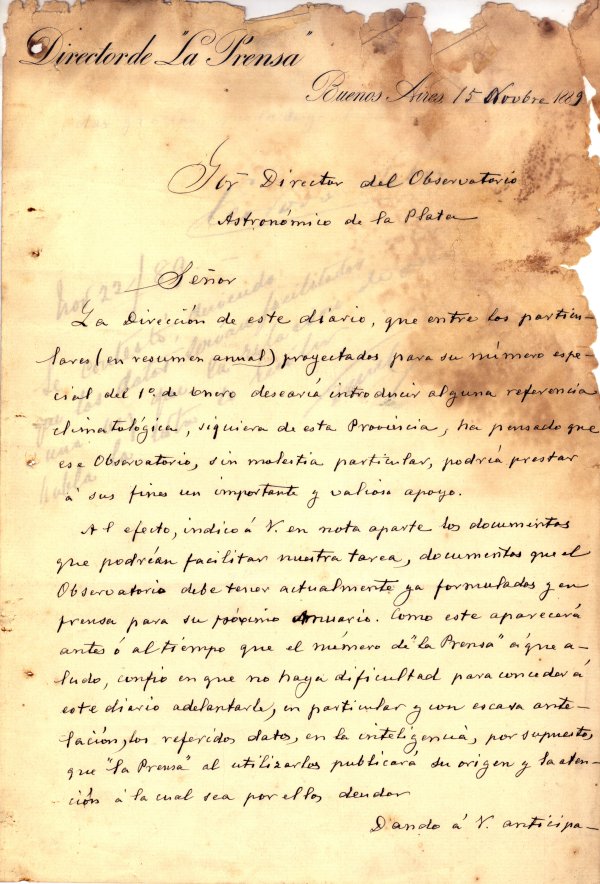 Director de "La Prensa"
Buenos Aires 15 Novbre 1889
Sor Director del Observatorio
Astronómico de la Plata
Señor
La Dirección de este diario, que entre los particu-
lares (en resumen anual) proyectados para su número espe-
cial del 1o. de enero desearía introducir alguna referencia
climatológica, siquiera de esta Provincia, ha pensado que
ese Observatorio, sin molestia particular, podría prestar
á sus fines un importante y valioso apoyo.
Al efecto, indico á V. en nota aparte los documentos
que podrían facilitar nuestra tarea, documentos que el
Observatorio debe tener actualmente ya formulados y en
prensa para su próximo Anuario. Como este aparecerá
antes ó al tiempo que el número de "la Prensa" á que a-
ludo, confío en que no haya dificultad para conceder á
este diario adelantarle, en particular y con escasa ante-
lación, los referidos datos, en la inteligencia, por supuesto,
que "la Prensa" al utilizarlos publicará su origen y la aten-
ción á la cual sea por ellos deudor
Dando á V. anticipa-
Nov 22/89